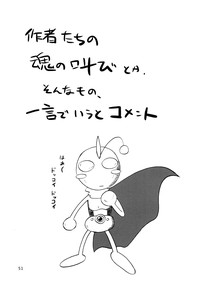 作者たちの
魂の叫びとか、
そんなもの、
一言でいうとコメント
はぁ〜
ドッコイドッコイ
51